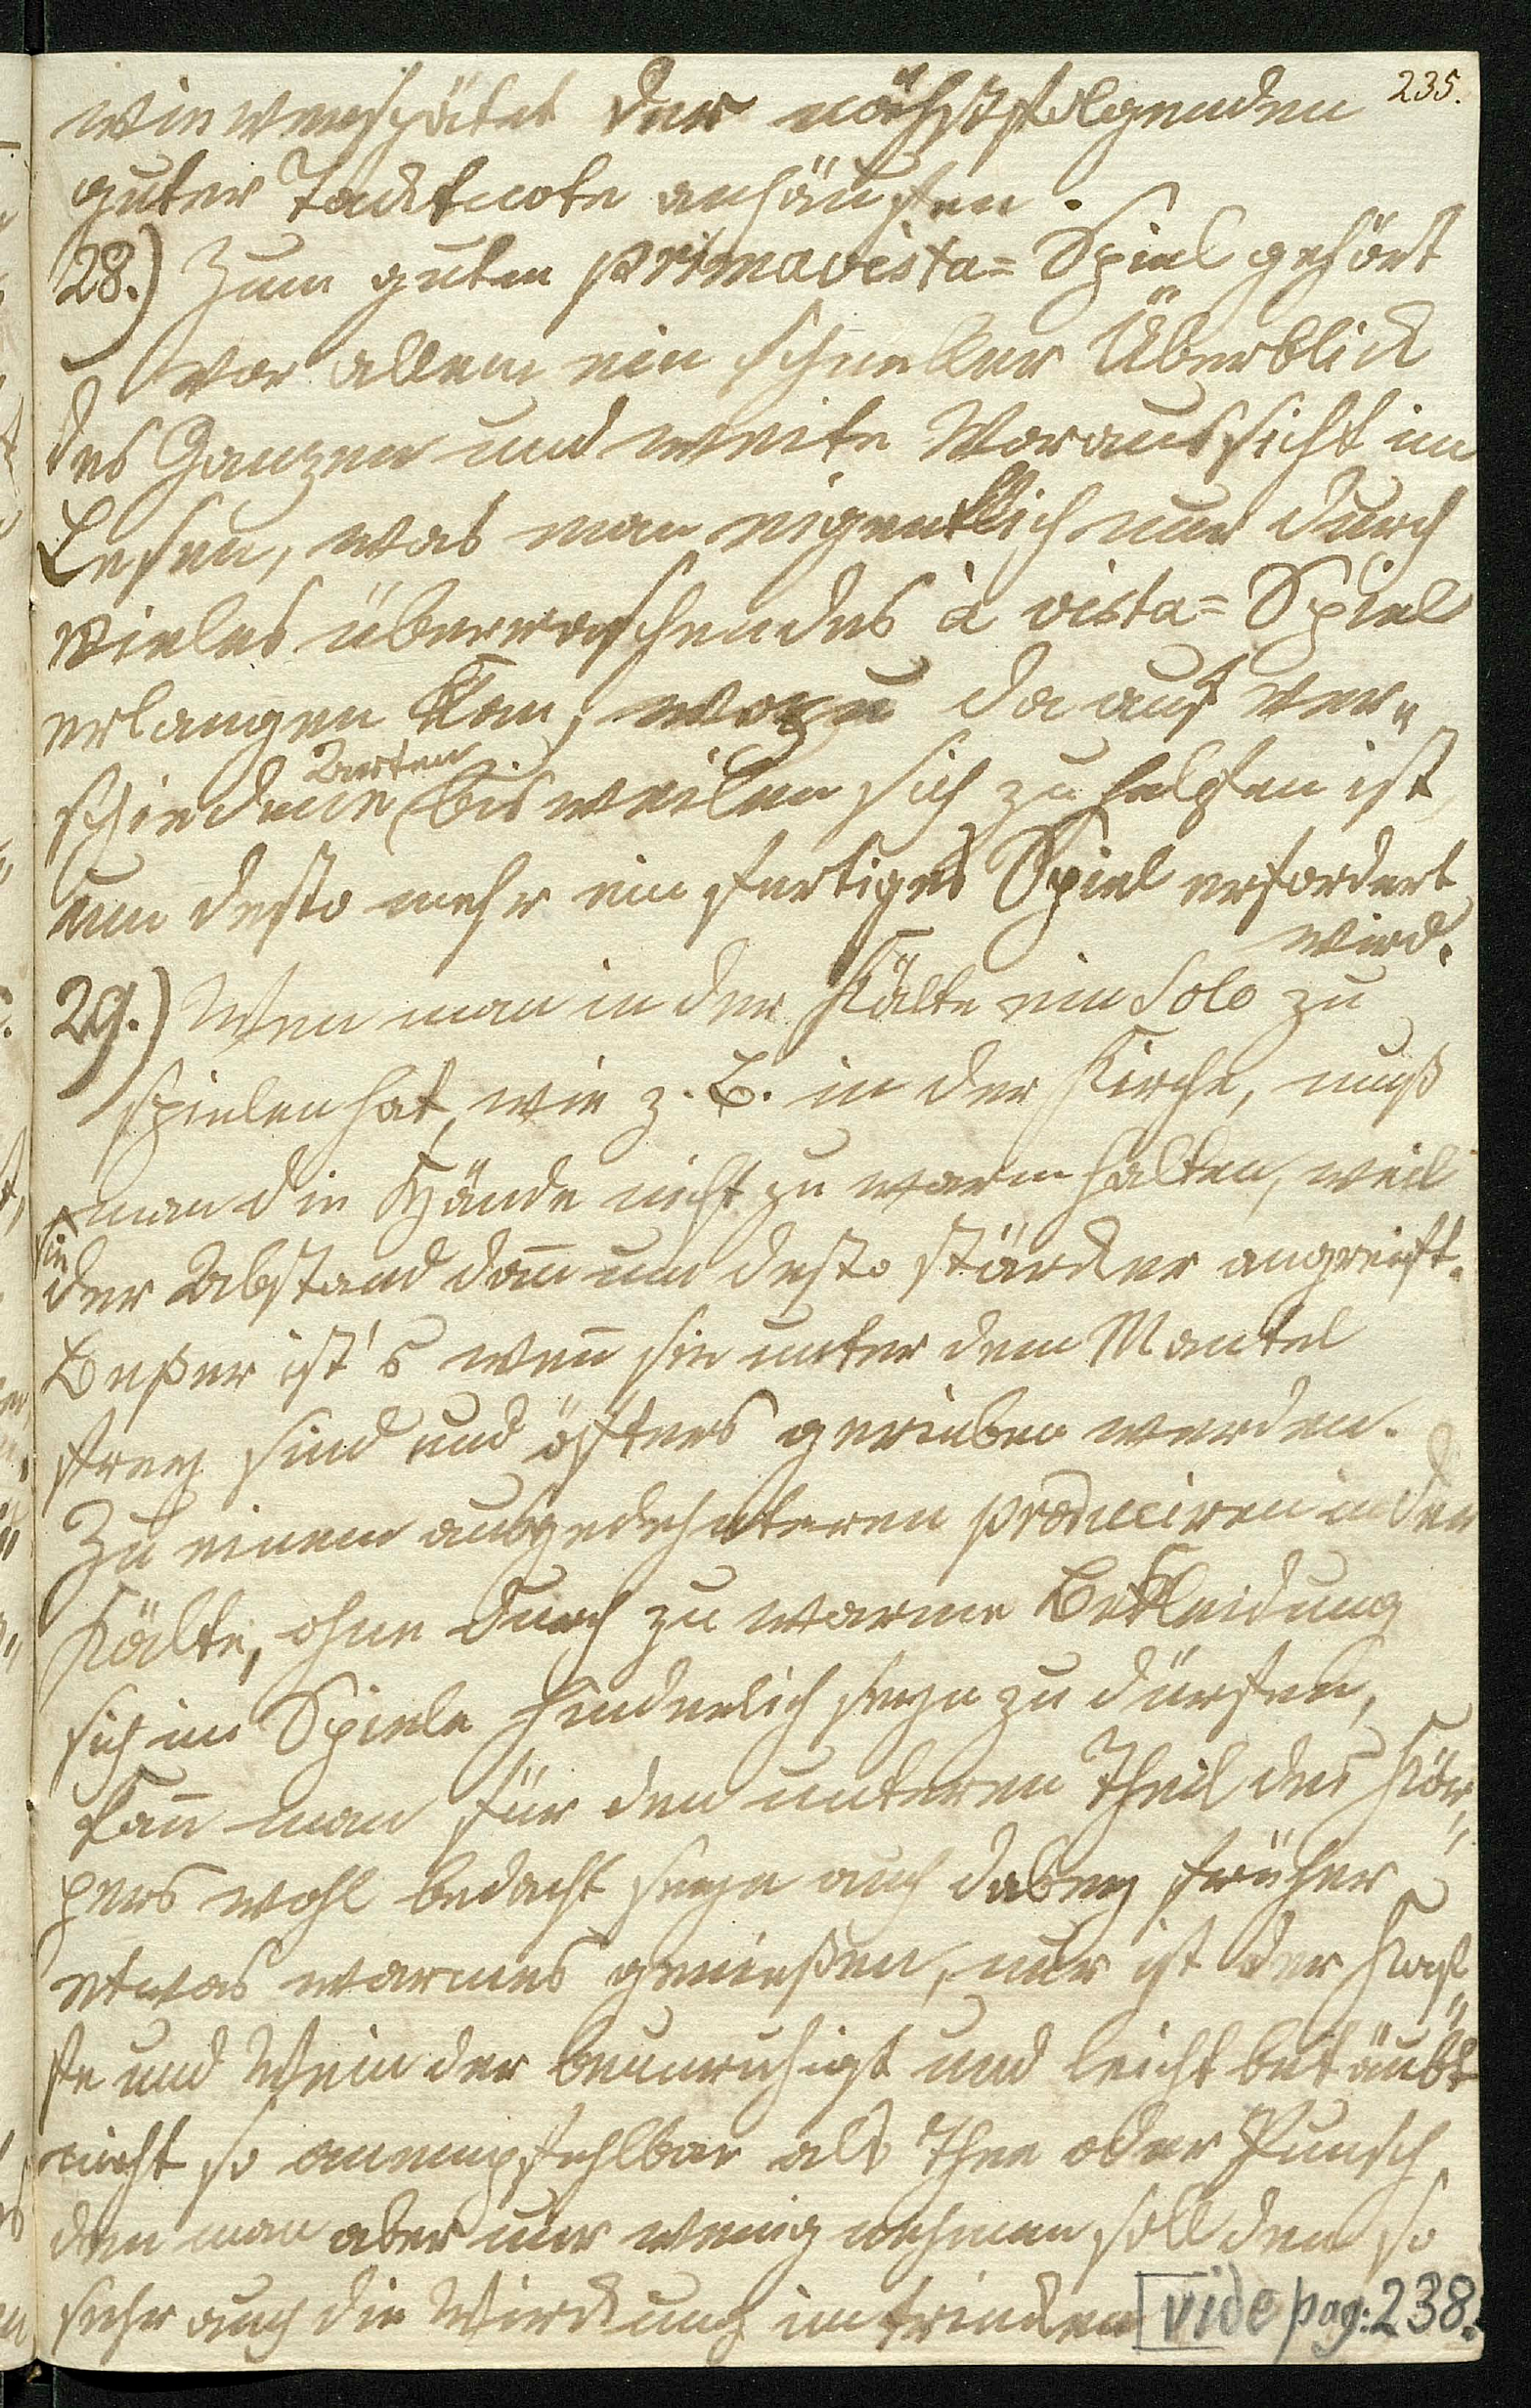 235.
wie verspätet der nächstfolgenden
guter Tacktnote anhäuffen.
28.) Zum guten primavista= Spiel gehört
vor allem ein schneller Überblick
des Ganzen und weite Voraussicht im
Lesen, was man eigentlich nur durch
vieles überraschendes à vista= Spiel
erlangen kan, wozu da auf ver„
schiedene Arten bisweilen sich zu helfen ist,
um desto mehr ein fertiges Spiel erfordert
wird.
29.) Wen man in der Kälte ein Solo zu
spielen hat, wie z. B. in der Kirche, muß
man die Hände nicht zu warm halten, weil
sie der Abstand dan̄ um desto stärcker angreift.
Beßer ist's wen̄ sie unter dem Mantel
frey sind und öfters gerieben werden.
Zu einem ausgedehnteren produciren in der
Kälte, ohne durch zu warme Bekleidung
sich im Spiele hinderlich seyn zu dürfen,
kan̄ man für den unteren Theil des Kör„
pers wohl bedacht seyn auch dabey früher
etwas warmes genießen, nur ist der Kaf„
fe und Wein der beunruhigt und leicht betäubt
nicht so anempfehlbar als Thee oder Punsch
den man aber nur wenig nehmen soll den so
sehr auch die Wirckung im trincken
vide pag: 238.